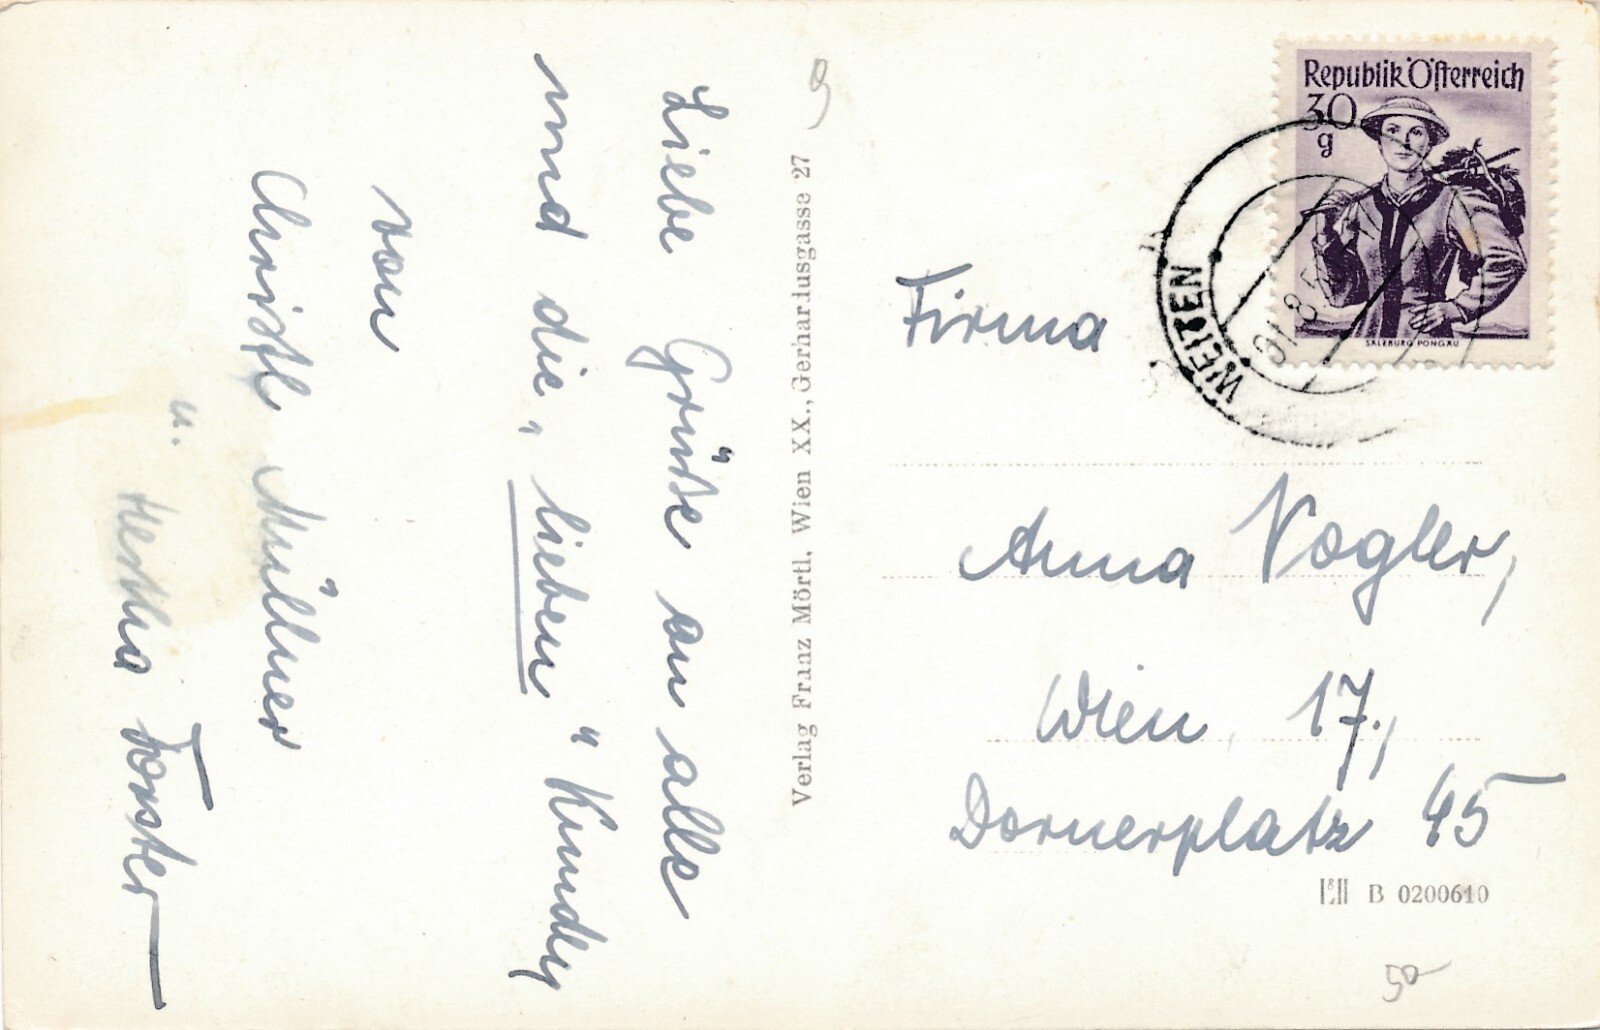 Liebe Grüße an alle
und die „lieben" Kunden
von
Christl Müllner
u. Hertha Forster
Verlag Franz Mörtl, Wien XX., Gerhardusgasse 27
Republik Österreich
30
g
SALZBURG PONGAU
WEITEN
Firma
Anna Vogler,
Wien 17.,
Dornerplatz 45
B 0200610
50